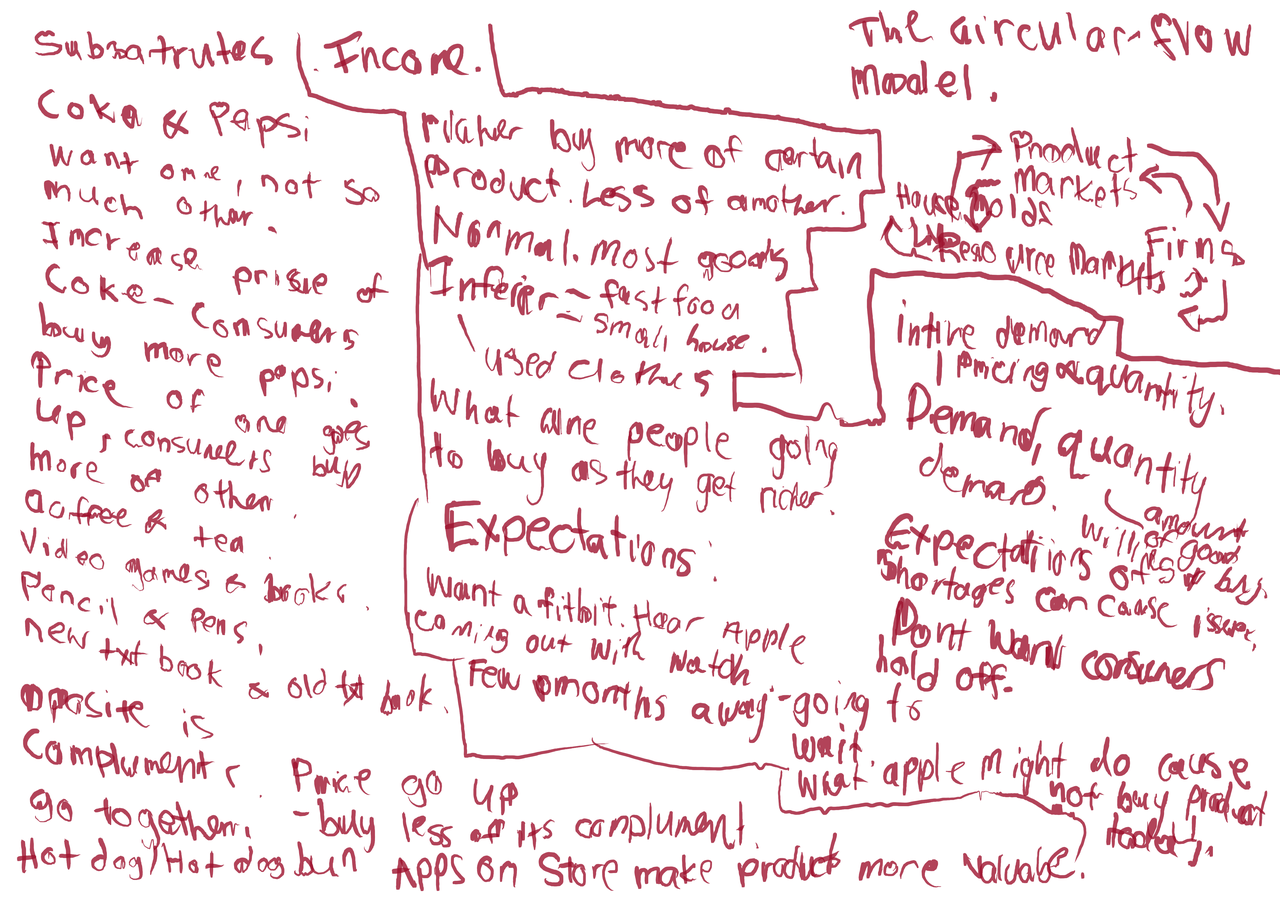 Subsatrutes
Coka & Pepsi
want one, not so
much other.
Increase prisce of
Coke - Consumers
buy more pepsi.
Price of one goes
up, consumers buy
more of other.
coffee & tea.
Video games & books.
Pencil & Pens.
new txt book & old txt book.
oposite is
Complument
go together.
Hot dog/Hot dog bun
Price go up
- buy less of its complument
APPS on Store make products more valuable.
Income.
richer buy more of certain
product. Less of another.
Normal. most goods
Inferier - fast food
- small house.
used clothes
What are people going
to buy as they get richer.
Expectations:
want a fitbit. Hear Apple
coming out with watch
Few months away - going to
wait
What apple might do cause
not buy product
today.
The circular-flow
Model.
Product
Markets
House holds
Firms
Resource Markets
intire demand
Pricing & quantity.
Demand, quantity
demand.
amount
of good
willing to buy.
Expectations of
shortages can cause issue.
Dont want consumers
hold off.